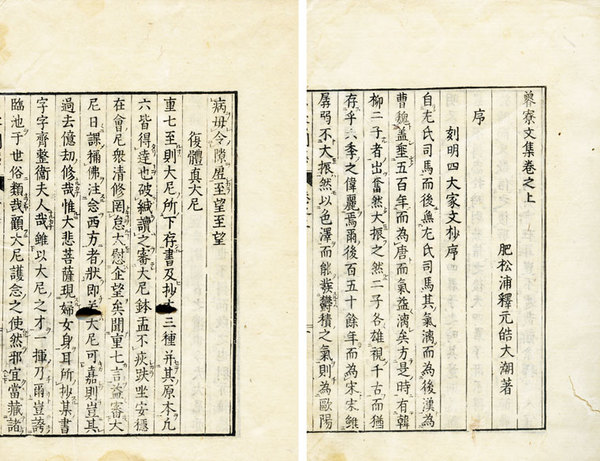 魯寮文集卷之上
肥松浦釋元皓大潮著
序
刻明四大家文抄序
自左氏司馬而後無左氏司馬其氣漓而為後漢為
曹魏蓋垂五百年而為唐而氣益漓矣方是時有韓
柳二子者出奮然大振之然二子各雄視千古而猶
存乎季之偉麗焉爾後百五十餘年而為宋宋雖
孱弱不大振然以色澤而能發欝積之氣則為歐陽
病毋令隙至望至望
復體真大尼
重七至則大尼所下存書及抄三種并其原本凢
六皆得達也破緘讀之審大尼鉢盂不疾趺坐安穩
在會尼衆清修罔怠大慰企望矣聞重七言益審大
尼日課稱佛注念西方者狀即大尼可嘉則豈其
過去億劫修哉惟大悲菩薩現婦女身耳所抄某書
字字齊整衛夫人哉雖以大尼之才一揮乃爾豈誇
臨池于世俗類哉顧大尼護念之使然邪宜當藏諸